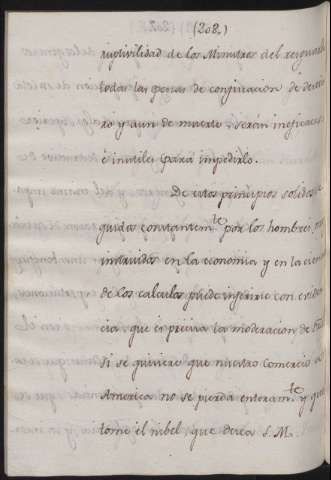 (208.)
ruptivilidad de los Ministros del resguardo
todas las penas de confiscacion de destier
ro y aun de muerte, serán ineficaces
é inutiles para impedirlo.
De estos principios solidos, se
guidos constantemte. por los hombres mas
instruidos en la economia y en la ciencia
de los calculos puede inferirse con eviden
cia, que es precisa la moderacion de
si se quisiere que nuestro Comercio à
America no se pierda enteramte. y que
tome el nibel, que desea S. M.